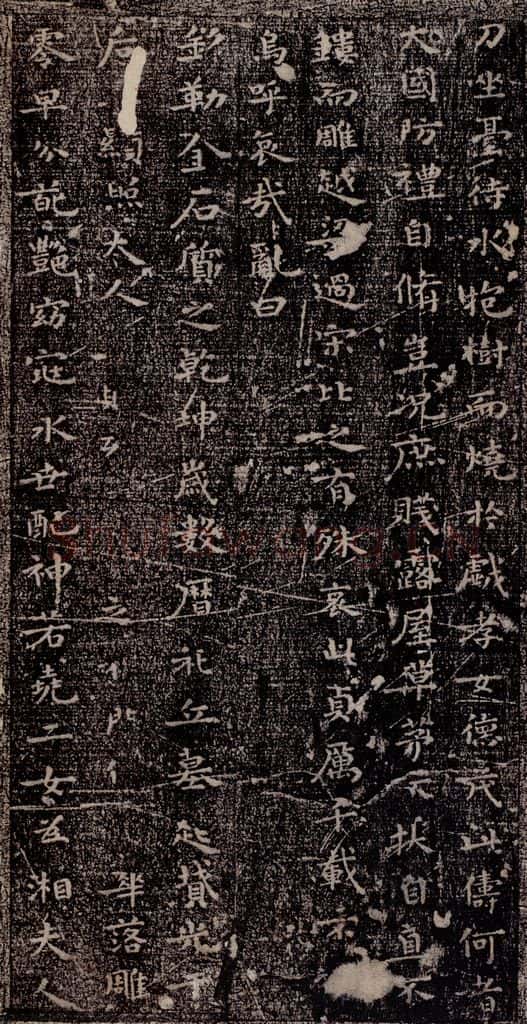 刀坐臺待水抱樹而燒於戲孝女德茂此儔何者
大國防禮自脩豈況庶賤露屋草茅不扶自直不
鏤而雕越梁過宋比之有殊哀此貞厲千載不
嗚呼哀哉亂曰
銘勒金石質之乾坤歲數曆祀丘墓起墳光于
后顯照夫人之門落雕
零早分葩艷窈窕永世配神若堯二女為湘夫人